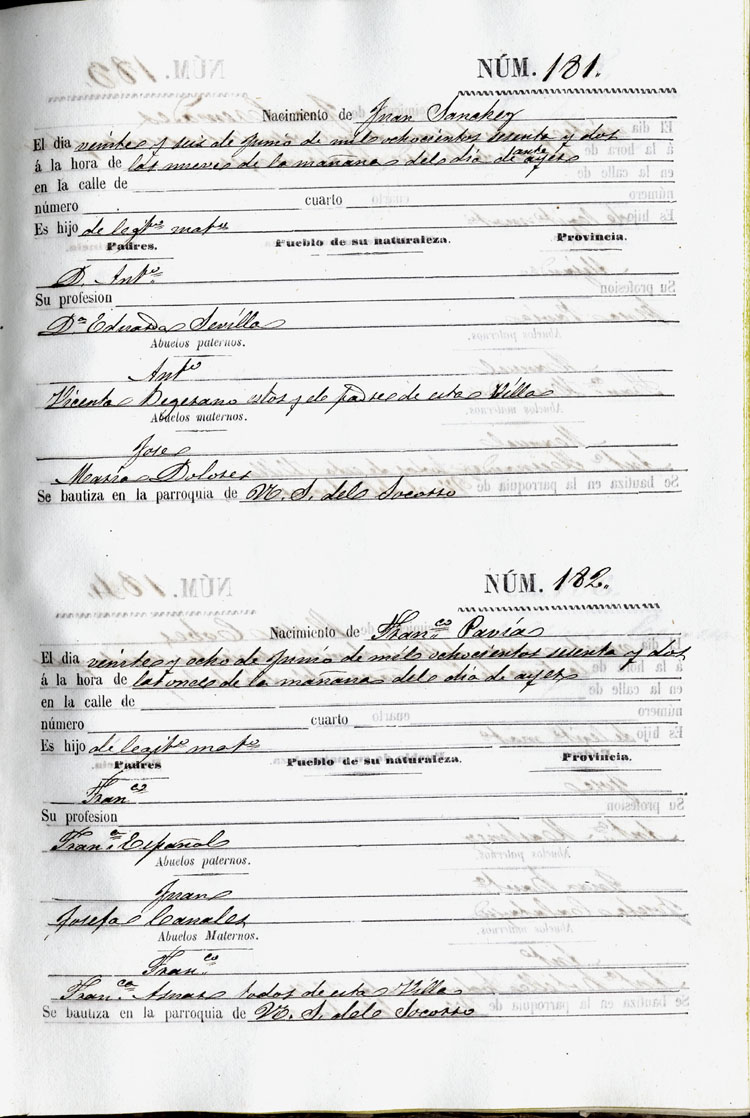 NÚM. 181.
Nacimiento de Juan Sanchez
El dia veinte y seis de Junio de mil ochocientos sesenta y dos
á la hora de las nueve de la mañana del dia de ante ayer
en la calle de
número cuarto
Es hijo de legᵗᵒ matᵒ
Padres. Pueblo de su naturaleza. Provincia.
D. Antᵒ
Su profesion
Dª Eduarda Sevilla
Abuelos paternos.
Antᵒ
Vicenta estos y el padre de esta Villa
Abuelos maternos.
Jose
Maria Dolores
Se bautiza en la parroquia de N. S. del Socorro
NÚM. 182.
Nacimiento de Franᶜᵒ Pavía
El dia veinte y ocho de Junio de mil ochocientos sesenta y dos
á la hora de las once de la mañana del dia de ayer
en la calle de
número cuarto
Es hijo de legitᵒ matᵒ
Padres Pueblo de su naturaleza. Provincia.
Franᶜᵒ
Su profesion
Franª Español
Abuelos paternos.
Juan
Josefa Canales
Abuelos Maternos.
Franᶜᵒ
Franᶜª Asnar todos de esta Villa
Se bautiza en la parroquia de N. S. del Socorro